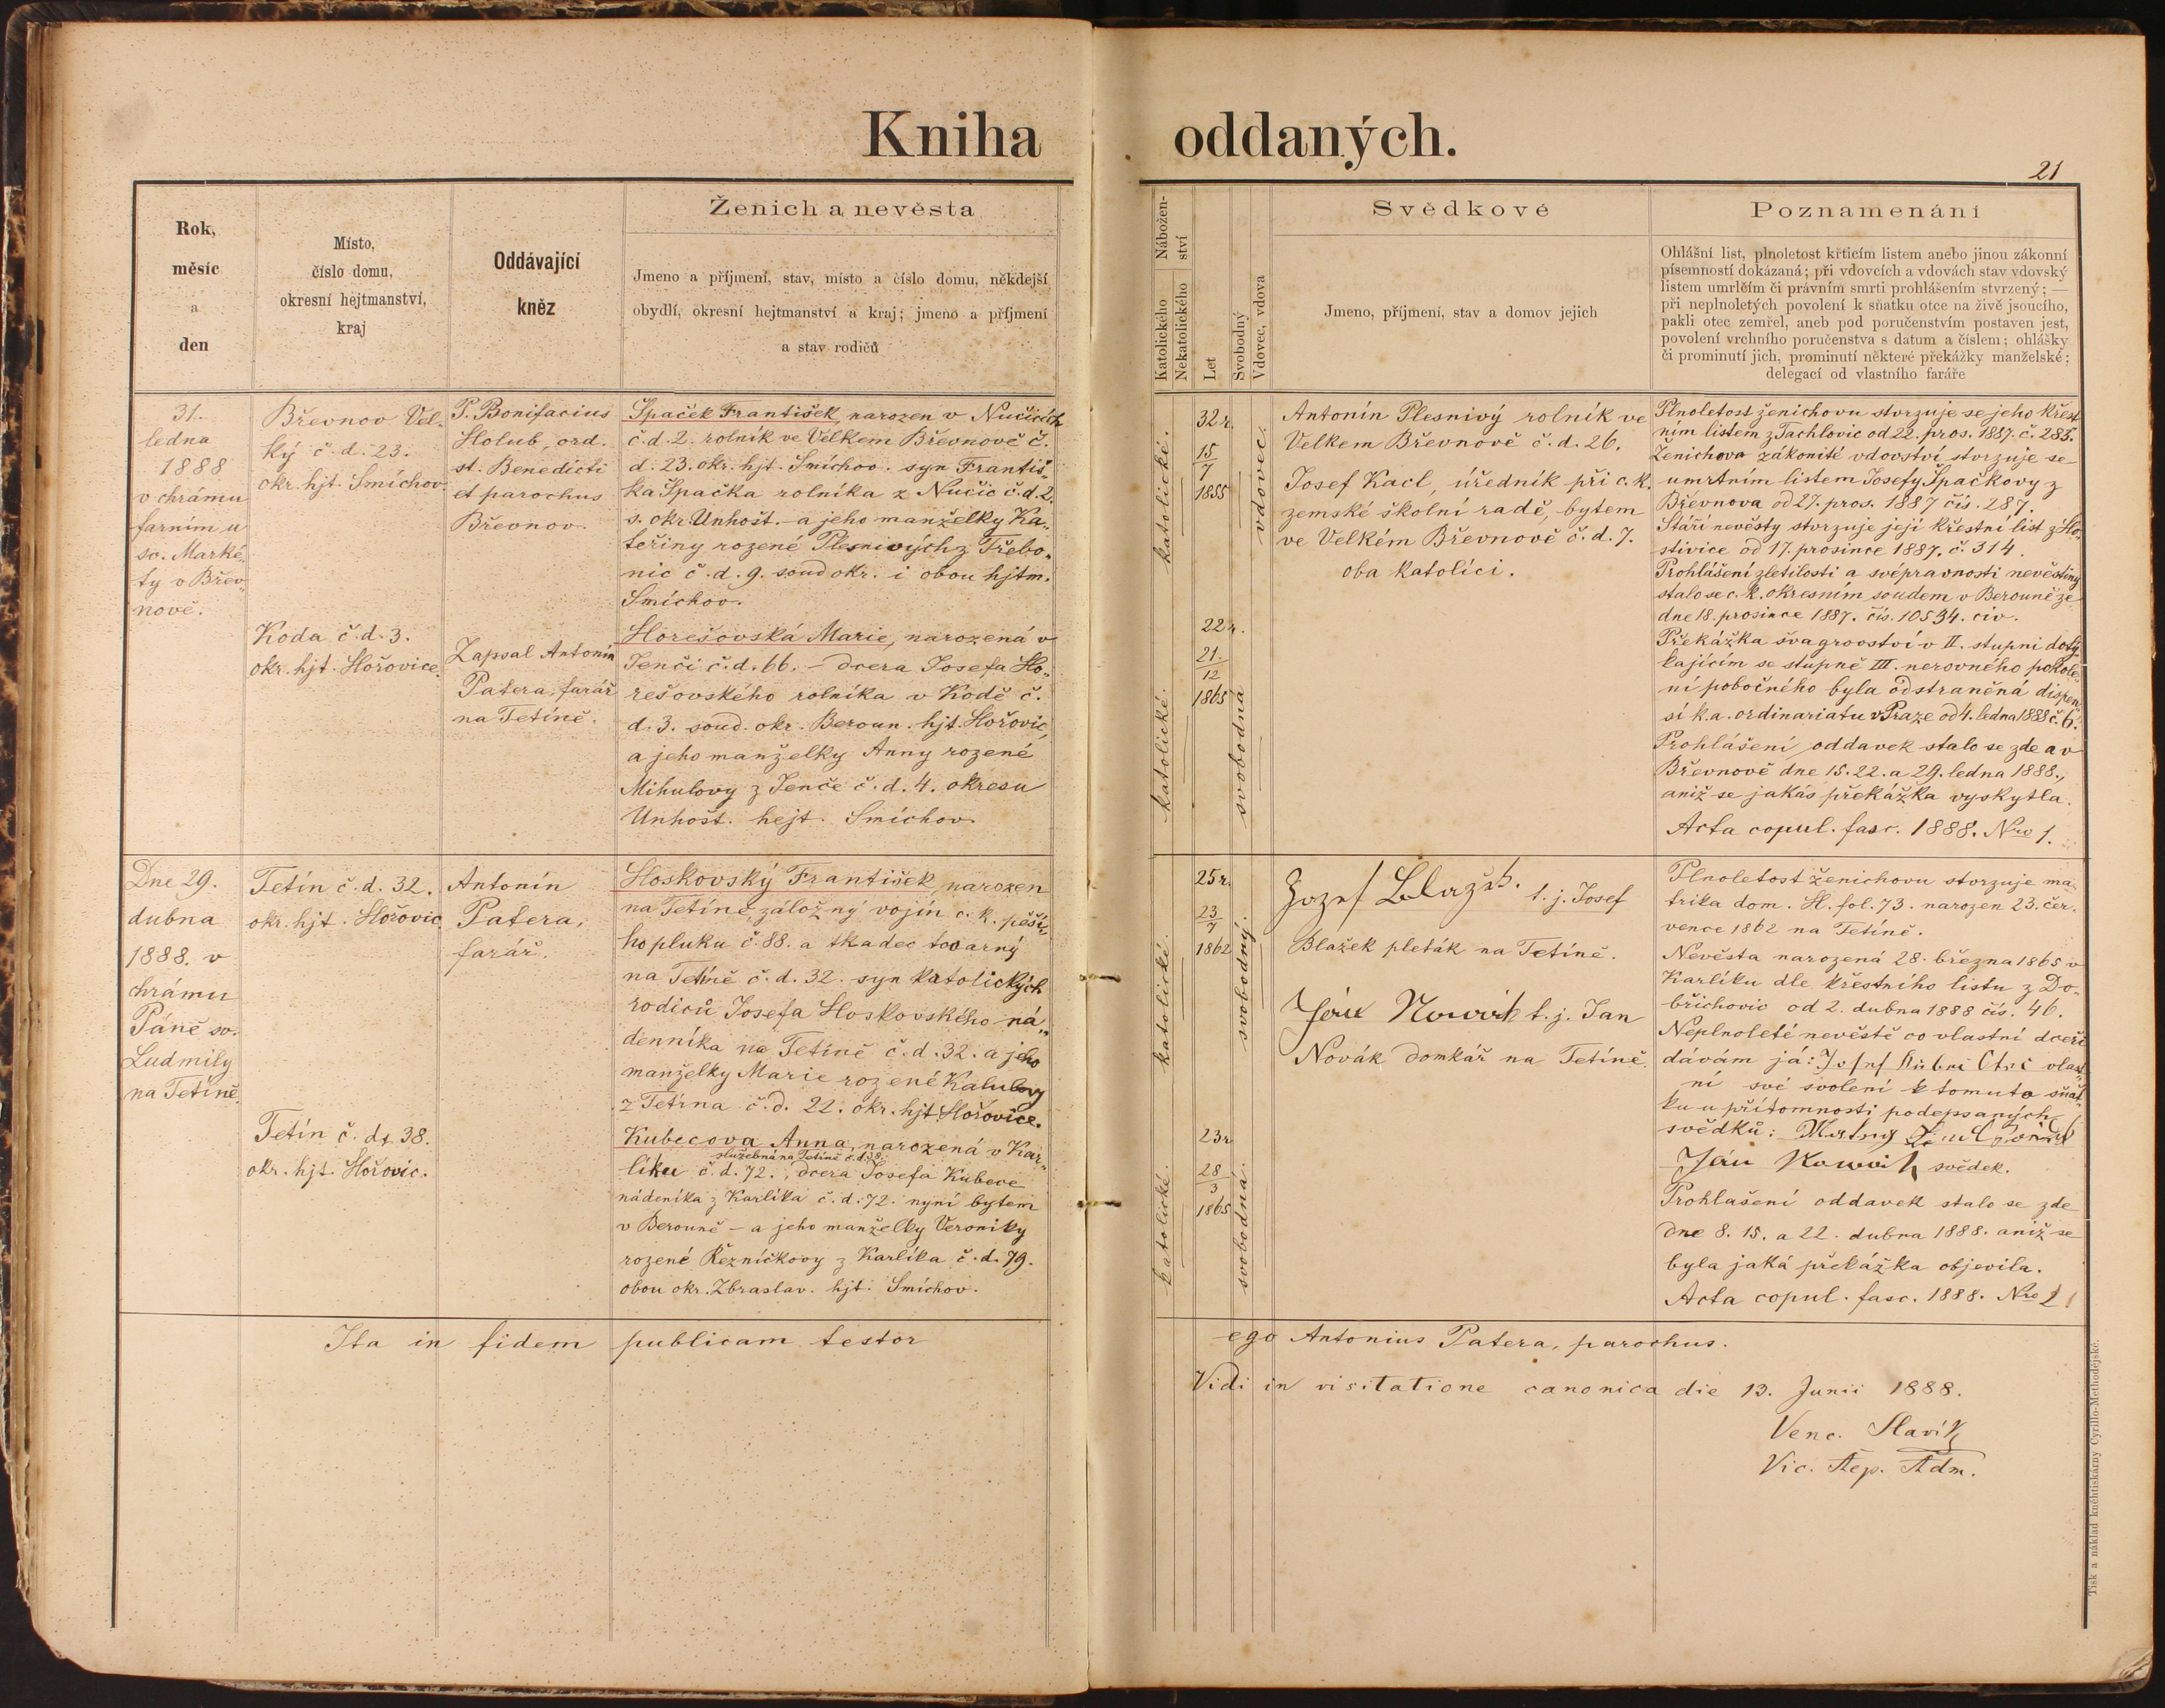 Kniha oddaných.
21
Rok,
měsíc
a
den
Místo,
číslo domu,
okresní hejtmanství,
kraj
Oddávající
kněz
Ženich a nevěsta
Jmeno a příjmení, stav, místo a číslo domu, někdejší
obydlí, okresní hejtmanství a kraj; jmeno a příjmení
a stav rodičů
Nábožen-
ství
Katolického
Nekatolického
Let
Svobodný
Vdovec, vdova
Svědkové
Jmeno, příjmení, stav a domov jejich
Poznamenání
Ohlášní list, plnoletost křticím listem anebo jinou zákonní
písemností dokázaná; při vdovcích a vdovách stav vdovský
listem umrlčím či právním smrti prohlášením stvrzený; —
při neplnoletých povolení k sňatku otce na živě jsoucího,
pakli otec zemřel, aneb pod poručenstvím postaven jest,
povolení vrchního poručenstva s datum a číslem; ohlášky
či prominutí jich, prominutí některé překážky manželské;
delegací od vlastního faráře
31.
ledna
1888
v chrámu
farním u
sv. Marké-
ty v Břev-
nově.
Břevnov Vel-
ký č. d. 23.
okr. hjt. Smíchov.
P. Bonifacius
Holub, ord.
st. Benedicti
et parochus
Břevnov.
Spaček František, narozen v Nučicích
č. d. 2. rolník ve Velkem Břevnově č.
d. 23. okr. hjt. Smíchov. syn Františ-
ka Špačka rolníka z Nučic č. d. 2.
s. okr. Unhošt. - a jeho manželky Ka-
teřiny rozené Plesnivých z Třebo-
nic č. d. 9. soud okr. i obou hjtm.
Smíchov.
Koda č. d. 3.
okr. hjt. Hořovice.
Zapsal Antonín
Patera, farář
na Tetíně.
Horešovská Marie, narozená v
Jenči č. d. 66. - dcera Josefa Ho-
rešovského rolníka v Kodě č.
d. 3. soud. okr. Beroun. hjt. Hořovic,
a jeho manželky Anny rozené
Mihulovy z Jenče č. d. 4. okresu
Unhošt. hejt. Smíchov.
katolické.
32 r.
15
7
1855
vdovec.
Antonín Plesnivý rolník ve
Velkem Břevnově č. d. 26.
Josef Kacl, úředník při c. k.
zemské školní radě, bytem
ve Velkém Břevnově č. d. 7.
oba katolíci.
katolické.
22 r.
21.
12
1865
svobodná
Plnoletost ženichovu stvrzuje se jeho křest-
ním listem z Tachlovic od 22. pros. 1887. č. 285.
Ženichovo zákonité vdovství stvrzuje se
umrtním listem Josefy Špačkovy z
Břevnova od 27. pros. 1887 čís. 287.
Stáří nevěsty stvrzuje její křestní list z Ho-
stivice od 17. prosince 1887. č. 314.
Prohlášení zletilosti a svéprávnosti nevěstiny
stalo se c. k. okresním soudem v Berouně ze
dne 18. prosince 1887. čís. 10534. civ.
Překážka švagrovství v II. stupni doty-
kajícím se stupně III. nerovného pokole-
ní pobočného byla odstraněná dispen-
sí k. a. ordinariatu v Praze od 4. ledna 1888 č. 6.
Prohlášení oddavek stalo se zde a v
Břevnově dne 15. 22. a 29. ledna 1888.,
aniž se jakás překážka vyskytla.
Acta copul. fasc. 1888. Nro 1.
Dne 29.
dubna
1888. v
chrámu
Páně sv.
Ludmily
na Tetíně.
Tetín č. d. 32.
okr. hjt. Hořovic.
Antonín
Patera,
farář.
Hoskovský František, narozen
na Tetíně, záložný vojín c. k. pěší-
ho pluku č. 88. a tkadlec tovarný
na Tetíně č. d. 32. syn katolických
rodičů Josefa Hoskovského ná-
denníka na Tetíně č. d. 32. a jeho
manželky Marie rozené Kalubovy
z Tetína č. d. 22. okr. hjt. Hořovice.
Tetín č. d. 38.
okr. hjt. Hořovic.
Kubecova Anna, narozená v Kar-
služebná na Tetíně č. d. 38.
líku č. d. 72., dcera Josefa Kubece
nádeníka z Karlíka č. d. 72. nyní bytem
v Berouně - a jeho manželky Veroniky
rozené Řezníčkovy z Karlíka č. d. 79.
obou okr. Zbraslav. hjt. Smíchov.
katolické.
25 r.
23
7
1862
svobodný.
Jozef Blažek. t. j. Josef
Blažek pleták na Tetíně.
Ján Nowák t. j. Jan
Novák domkář na Tetíně.
katolické.
23 r
28
3
1865
svobodná.
Plnoletost ženichovu stvrzuje ma-
trika dom. H. fol. 73. narozen 23. čer-
vence 1862 na Tetíně.
Nevěsta narozená 28. března 1865 v
Karlíku dle křestního listu z Do-
břichovic od 2. dubna 1888 čís. 46.
Neplnoleté nevěstě co vlastní dceři
dávám já: Josef Otec vlast-
ní své svolení k tomuto sňat-
ku u přítomnosti podepsaných
svědků:
Ján Nowák svědek.
Prohlašení oddavek stalo se zde
dne 8. 15. a 22. dubna 1888. aniž se
byla jaká překážka objevila.
Acta copul. fasc. 1888. Nro 2
Ita in fidem publicam testor ego Antonius Patera, parochus.
Vidi in visitatione canonica die 13. Junii 1888.
Venc. Slavík
Vic. Rep. Adm.
Tisk a náklad knihtiskárny Cyrillo-Methodějské.